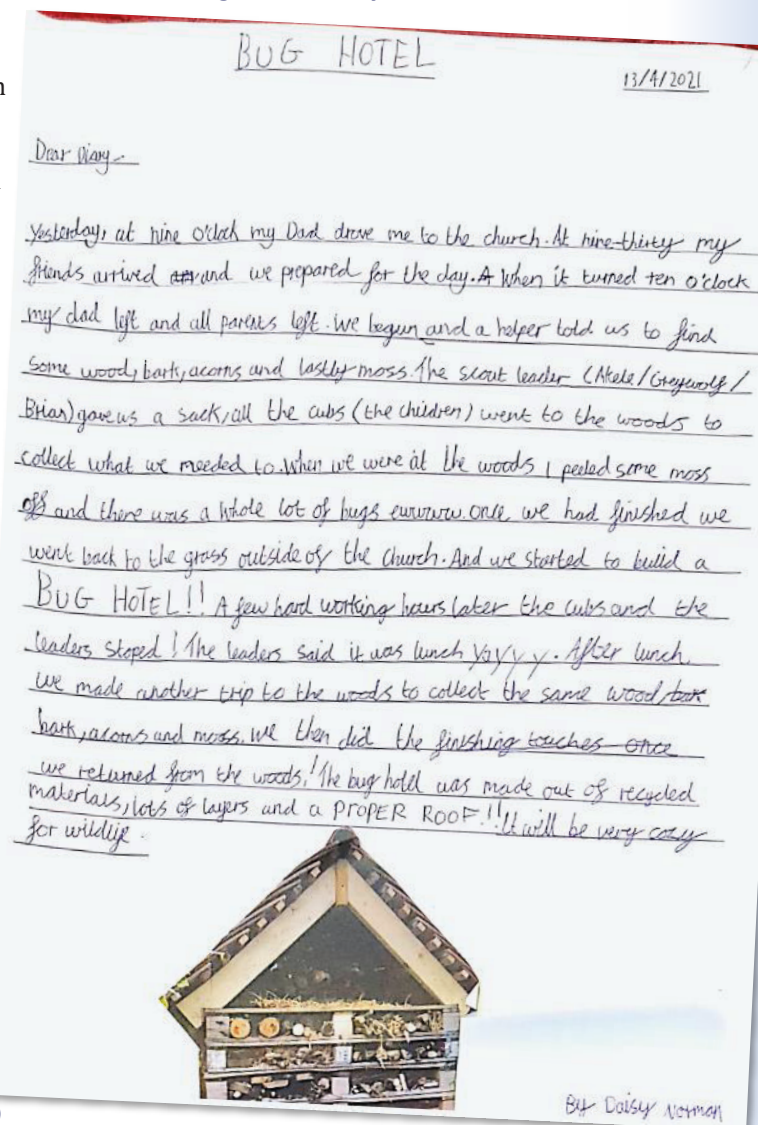 BUG HOTEL
13/4/2021
Dear Diary
Yesterday, at nine o'clock my Dad drove me to the church. At nine-thirty my
friends arrived and we prepared for the day. A When it turned ten o'clock
my dad left and all parents left. We begun and a helper told us to find
some wood, bark, acorns and lastly moss. The scout leader (Akele/Greywolf/
Brian) gave us a sack, all the cubs (the children) went to the woods to
collect what we needed to. When we were at the woods I peeled some moss
off and there was a whole lot of bugs ewwww. once we had finished we
went back to the grass outside of the church. And we started to build a
BUG HOTEL!! A few hard working hours later the cubs and the
leaders stoped! The leaders said it was lunch yayyy. After lunch
we made another trip to the woods to collect the same wood,
bark, acorns and moss. we then did the finishing touches once
we returned from the woods! The bug hotel was made out of recycled
materials, lots of layers and a PROPER ROOF!! It will be very cozy
for wildlife.
By Daisy Norman